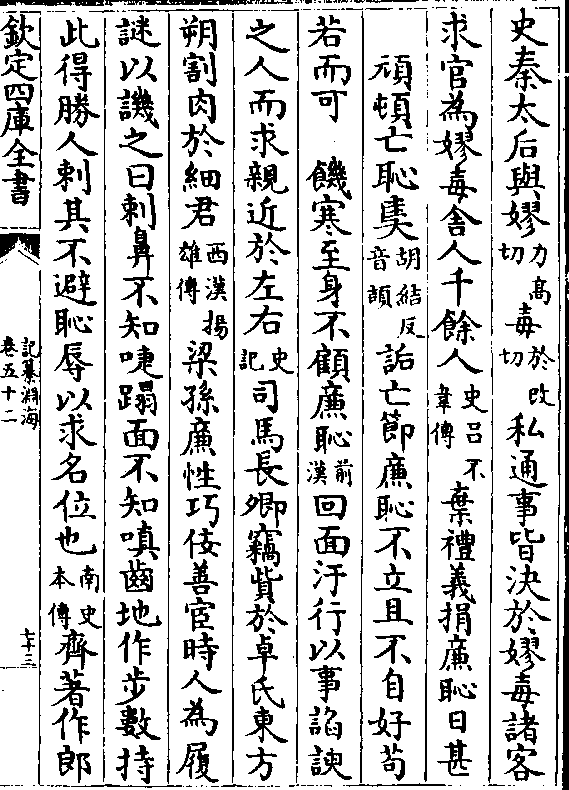 史秦太后與嫪力高切毒於改切私通事皆決於嫪毒諸客
求官為嫪毒舍人千餘人史呂不韋傳棄禮義捐廉恥日甚
頑頓亡恥奊胡結反音頡詬亡節廉恥不立且不自好苟
若而可 饑寒至身不顧廉恥前漢回面汙行以事諂諛
之人而求親近於左右史記司馬長卿竊貲於卓氏東方
朔割肉於細君西漢揚雄傳梁孫廉性巧佞善宦時人為履
謎以譏之曰刺鼻不知嚏蹋面不知嗔齒地作步數持
此得勝人刺其不避恥辱以求名位也南史本傳齊著作郎
欽定四庫全書
記纂淵海
卷五十二
七十三